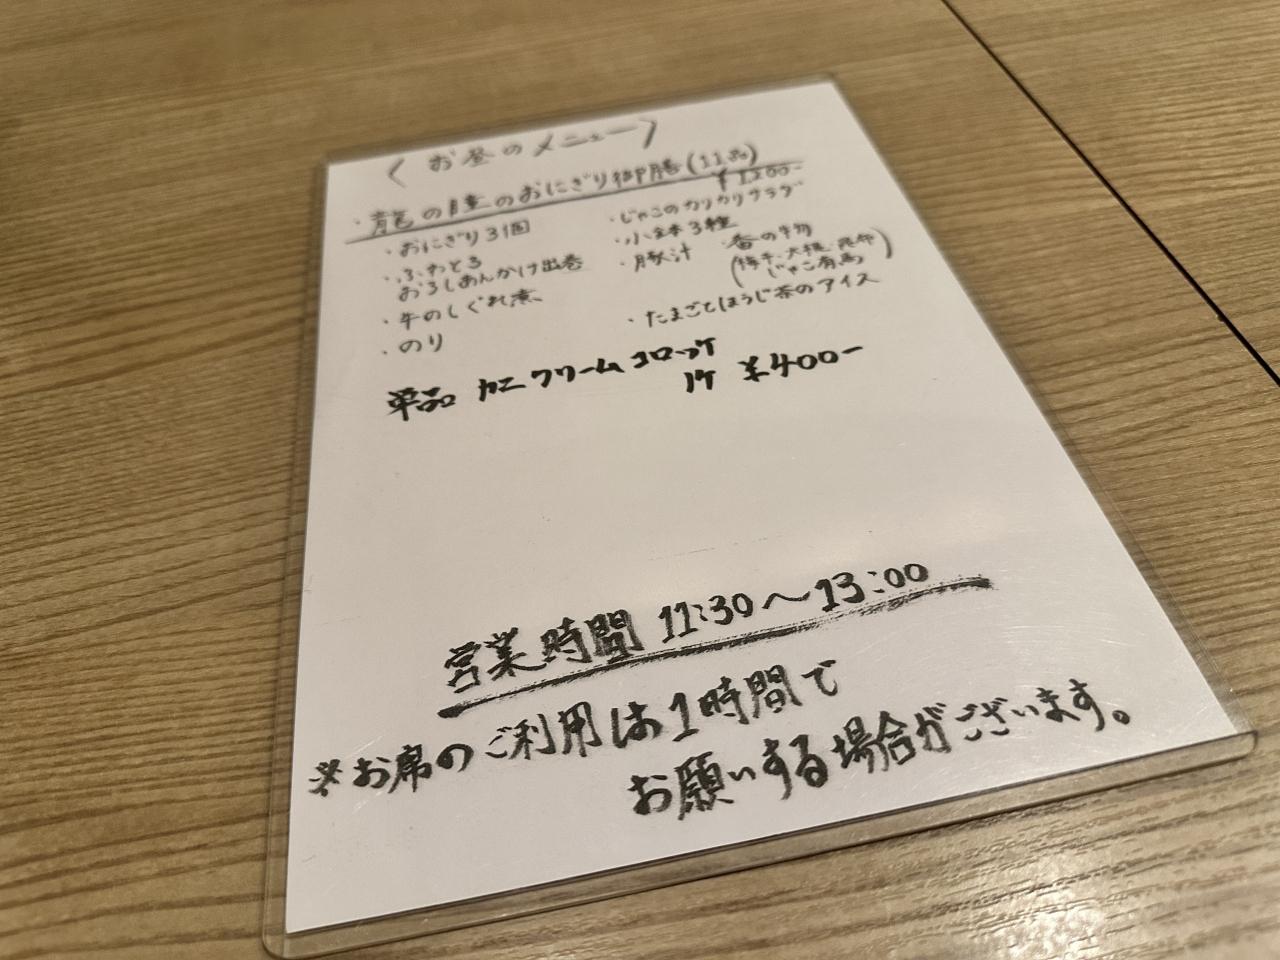 〈 お昼のメニュー 〉
・龍の瞳のおにぎり御膳(11品)
¥1,200-
・おにぎり3個
・ふわとろ
おろしあんかけ出巻
・牛のしぐれ煮
・のり
・じゃこのカリカリサラダ
・小鉢3種
・豚汁
・香の物
(梅干、大根、昆布
じゃこ有馬)
・たまごとほうじ茶のアイス
単品 カニクリームコロッケ
1ケ ¥400-
営業時間 11:30〜13:00
※お席のご利用は1時間で
お願いする場合がございます。